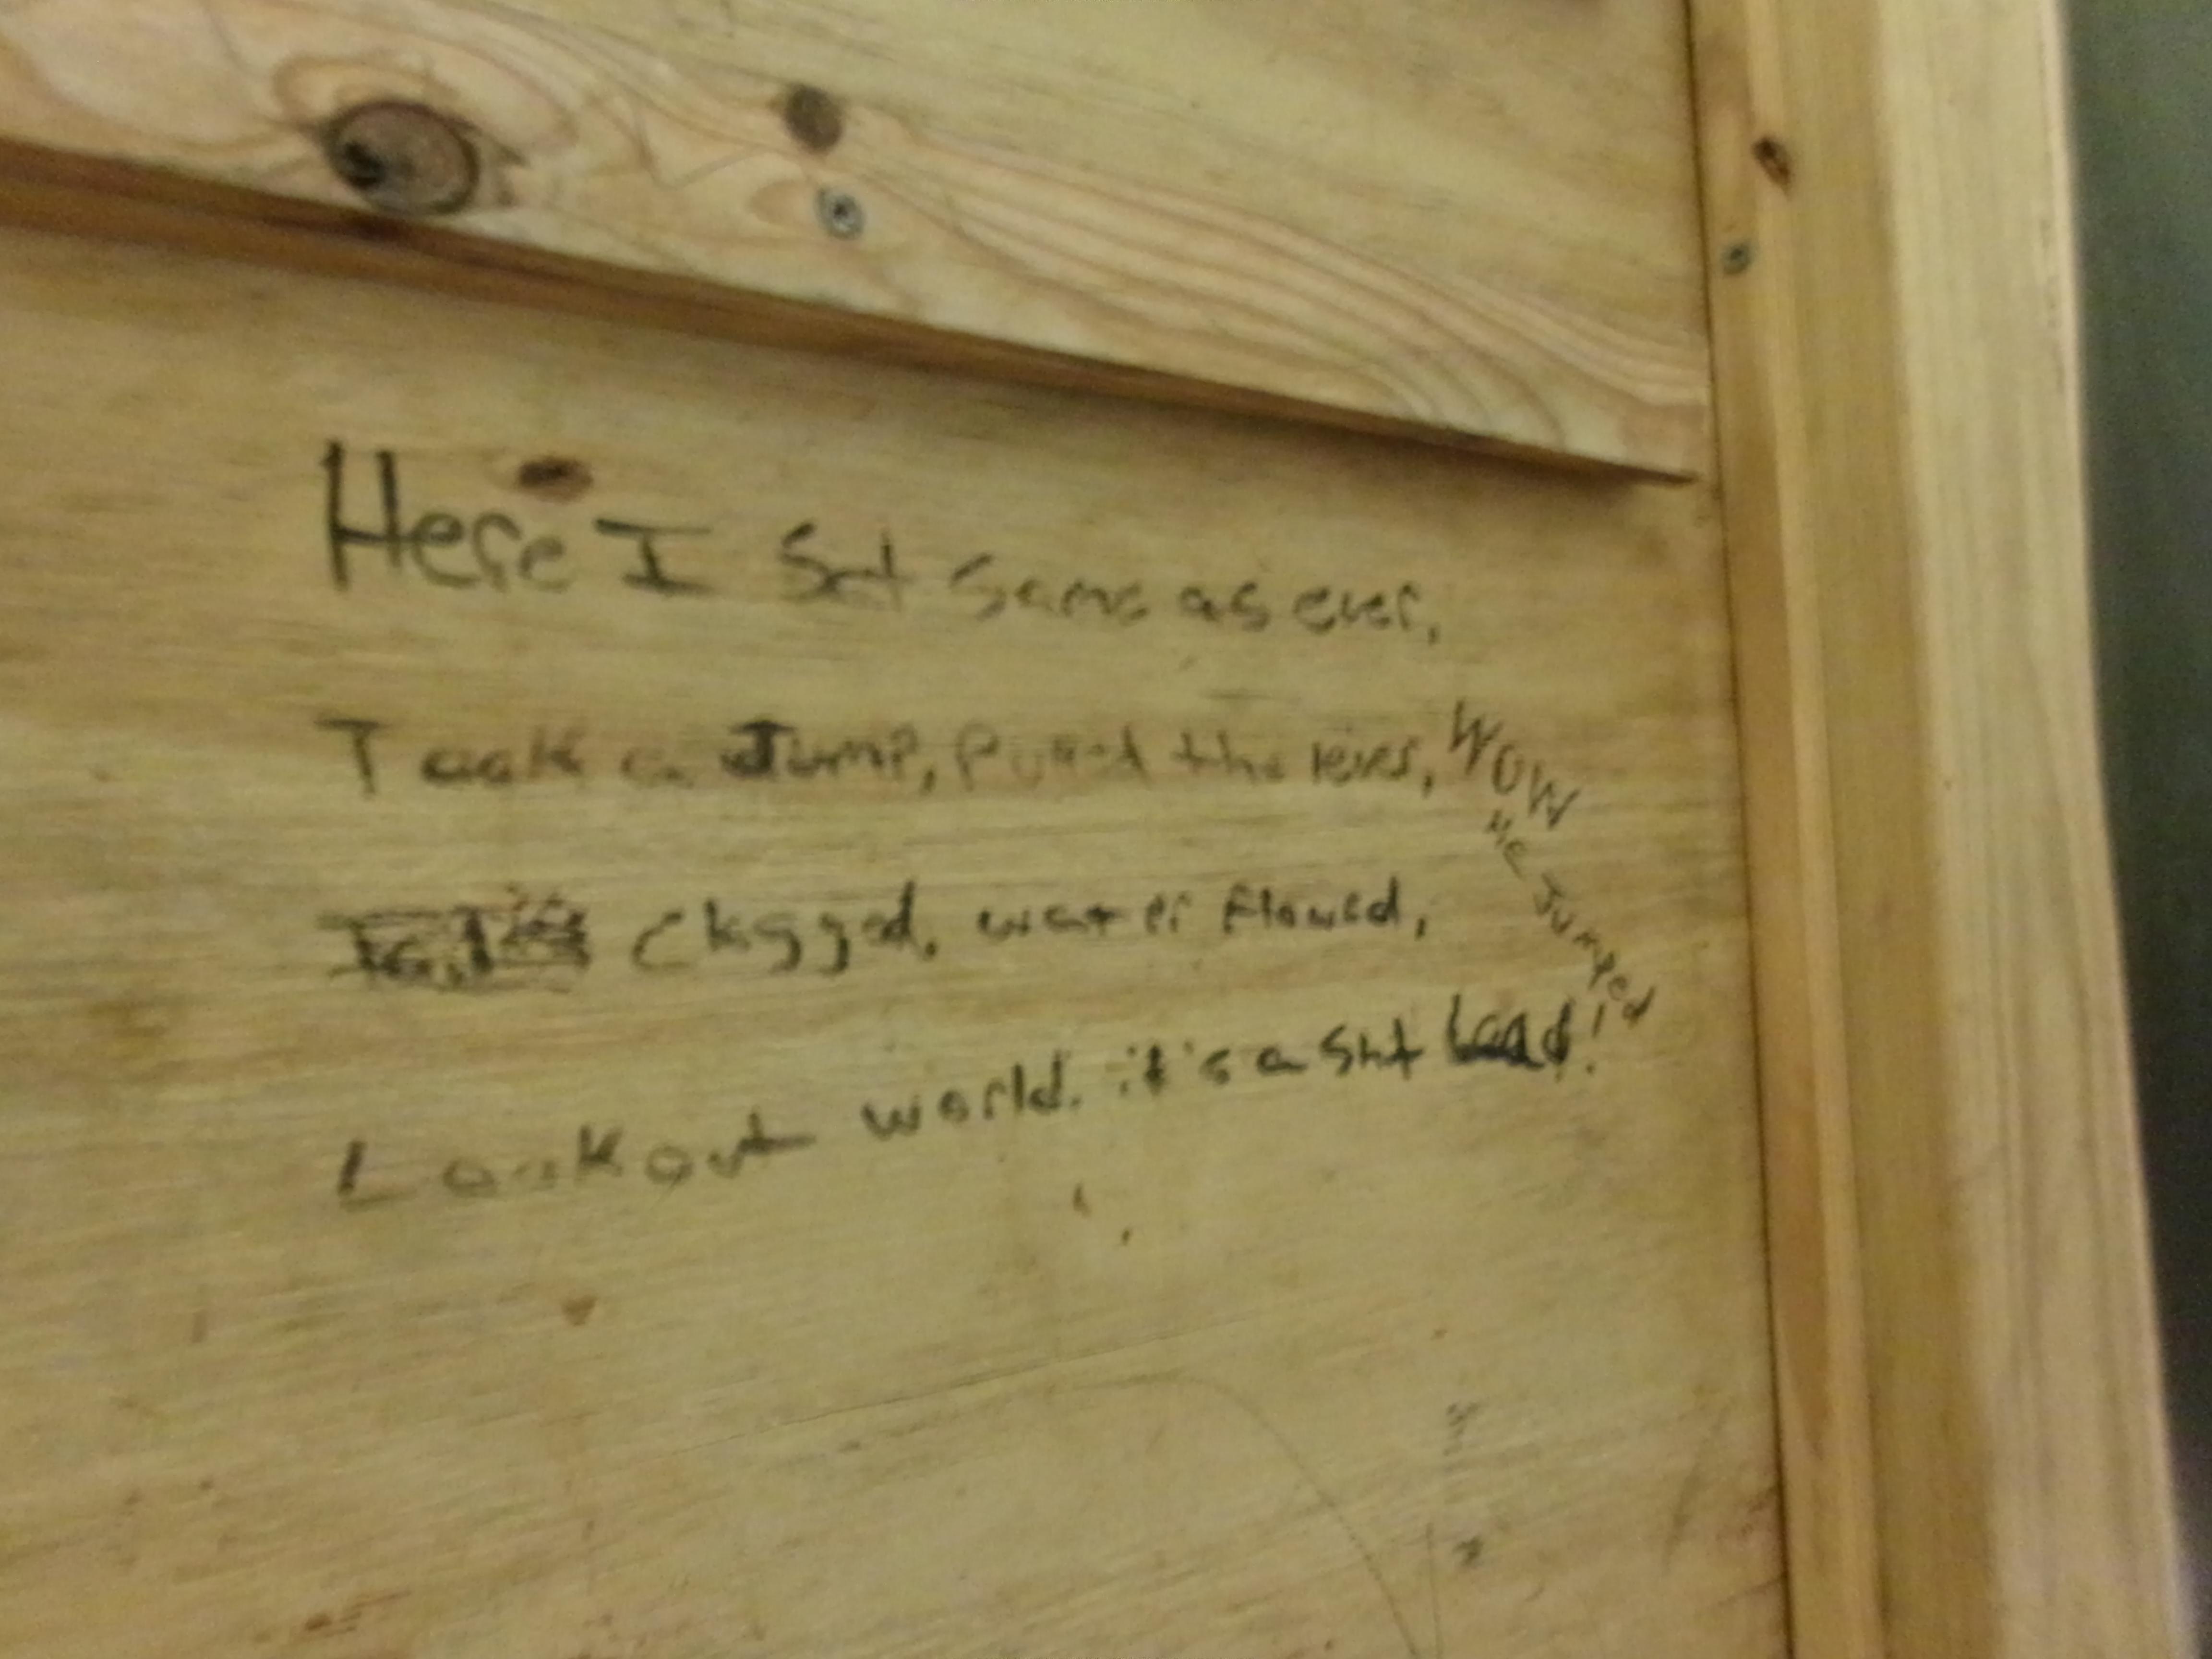 Here I Sat Same as ever,
Took a Jump, Pulled the lever,
Clogged, water flowed,
Lookout world. it's a Shit load!
WOW
He Jumped